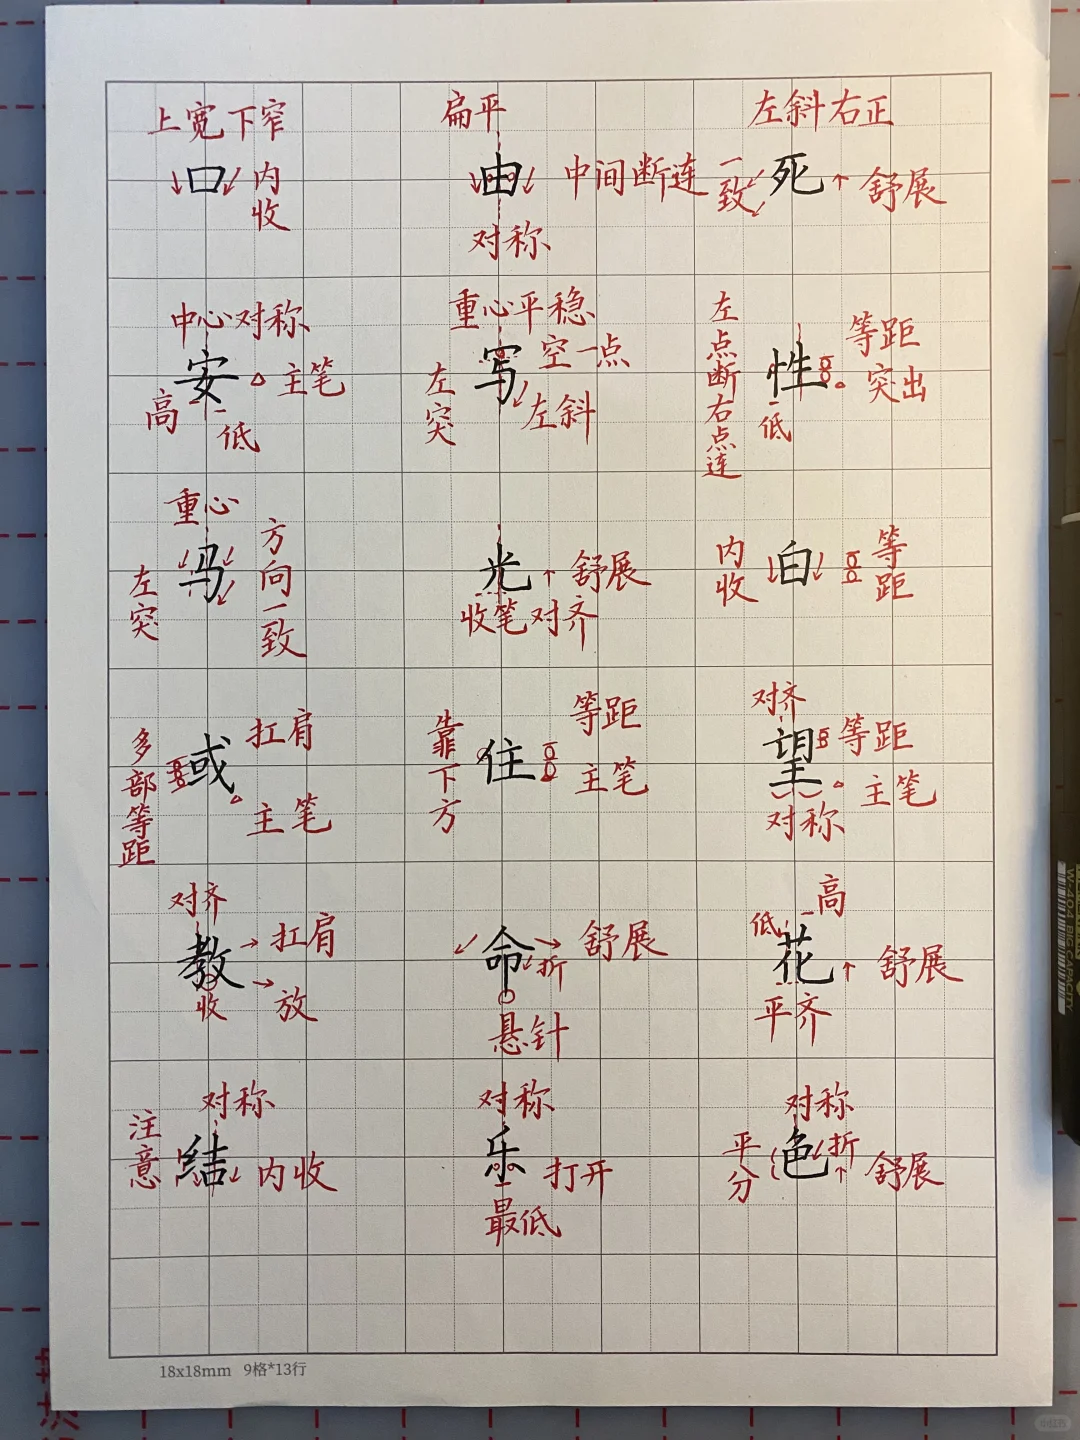 上宽下窄 扁平 左斜右正
口 内收 由 中间断连 一致 死 舒展
对称
中心对称 重心平稳 左点断右点连
安 主笔 写 空一点 性 等距
高 低 左突 左斜 低 突出
重心
马 方向一致 光 舒展 内收 白 等距
左突 收笔对齐
扛肩 等距 对齐
多部等距 或 靠下方 住 望 等距
主笔 主笔 主笔
对称
对齐 高
教 扛肩 命 舒展 低 花 舒展
收 放 折 平齐
悬针
对称 对称 对称
注意 结 内收 乐 打开 平分 色 折 舒展
最低
18x18mm 9格*13行
W-404 BIG CAPACITY
小红书